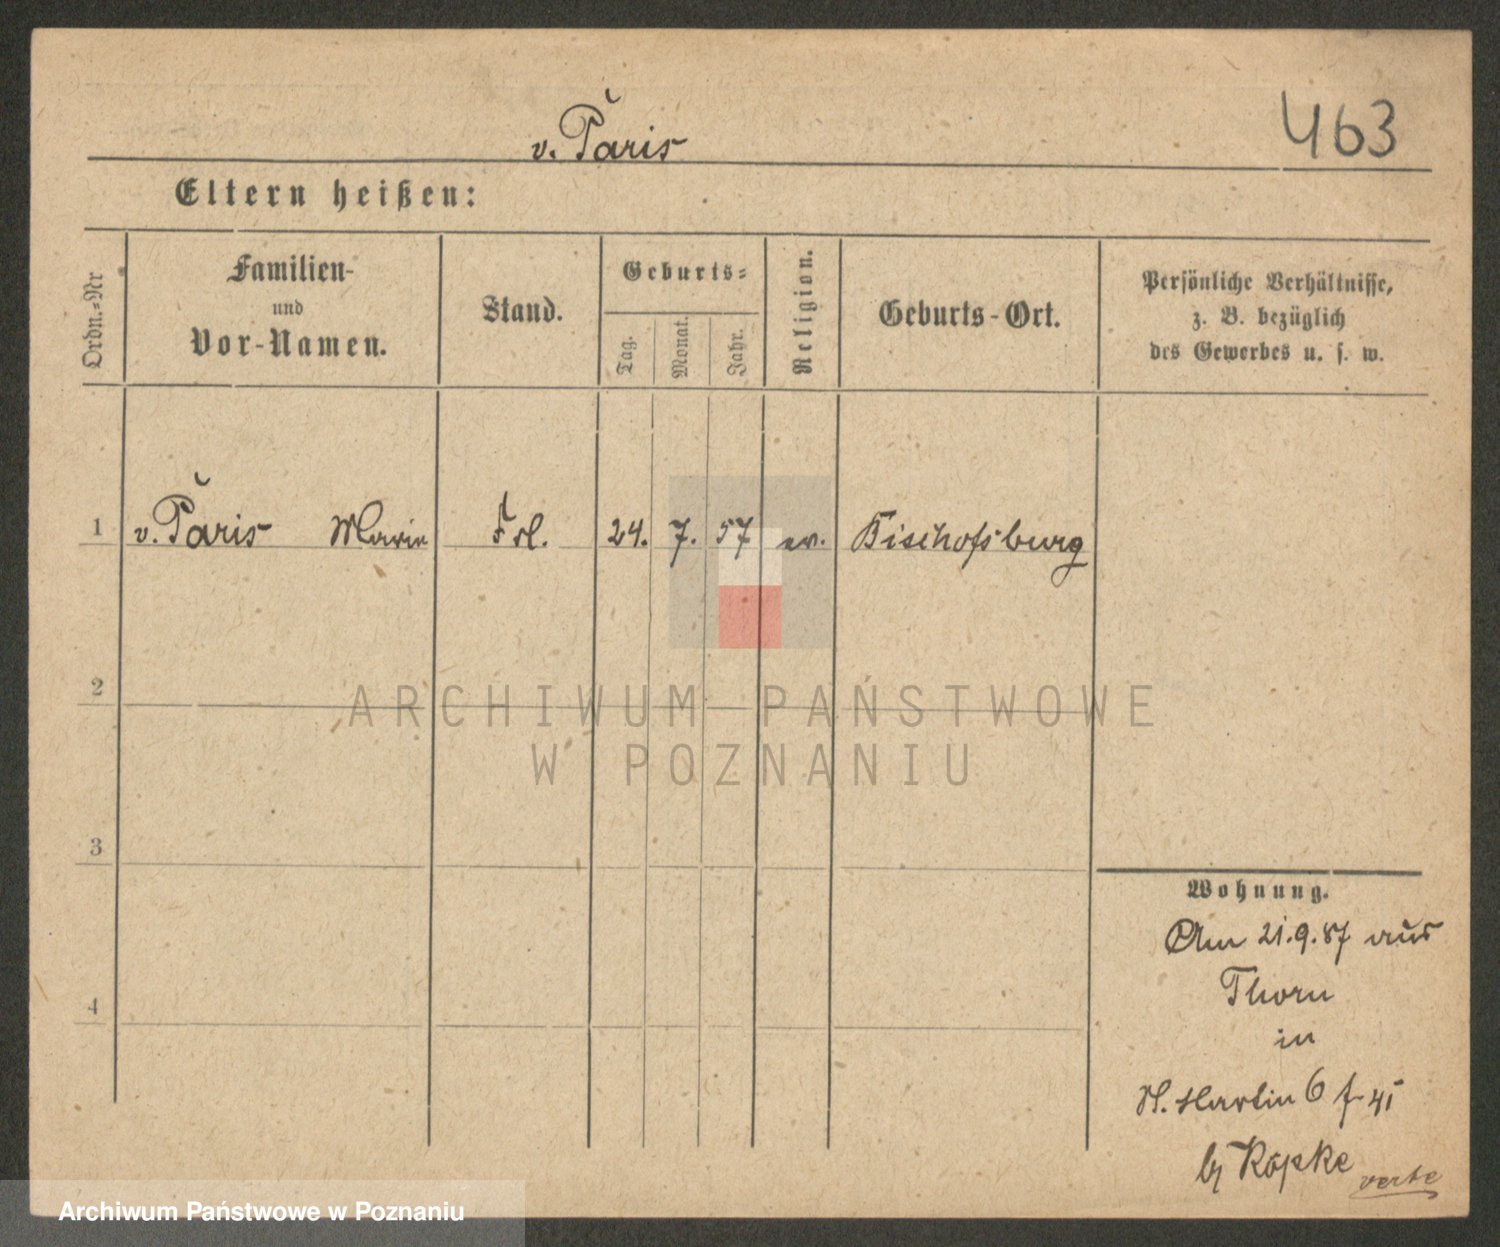 v. Paris
463
Eltern heißen:
Ordn.-Nr
Familien-
und
Vor-Namen.
Stand.
Geburts-
Tag.
Monat.
Jahr.
Religion.
Geburts-Ort.
Persönliche Verhältnisse,
z. B. bezüglich
des Gewerbes u. s. w.
1 v. Paris Marie Frl. 24. 7. 57 ev. Bischofsburg
2
ARCHIWUM PAŃSTWOWE
W POZNANIU
3
Wohnung.
Am 21.9.87 aus
4
Thorn
in
St. Martin 6
Köpke
verte
Archiwum Państwowe w Poznaniu